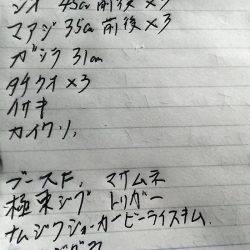 45cm 前後 ×3
マアジ 35cm 前後 ×3
ガシラ 31cm
タチウオ ×3
イサキ
カイワリ、
ブースト、マサムネ
極東ジグ トリガー
ナムジグ ジョーカー ビーライズキム